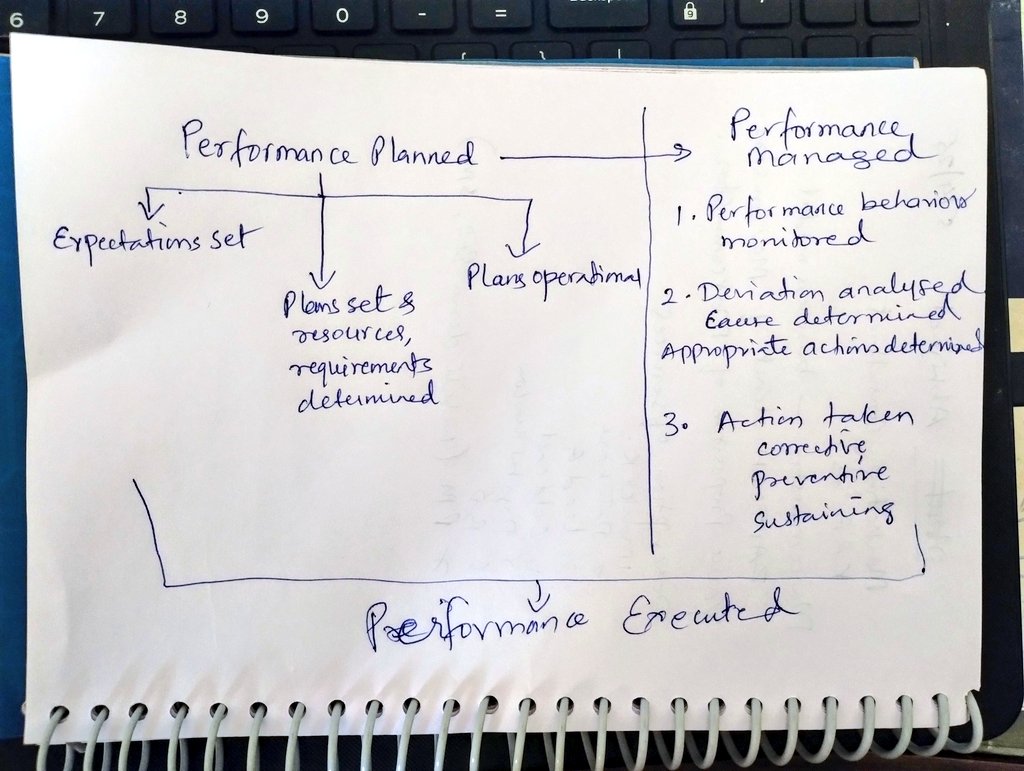 6 7 8 9 0 - =
Performance Planned
Expectations set
Plans set &
resources,
requirements
determined
Plans operational
Performance
Managed
1. Performance behavior
monitored
2. Deviation analysed
Cause determined
Appropriate actions determined
3. Action taken
corrective,
preventive
sustaining
Performance Executed